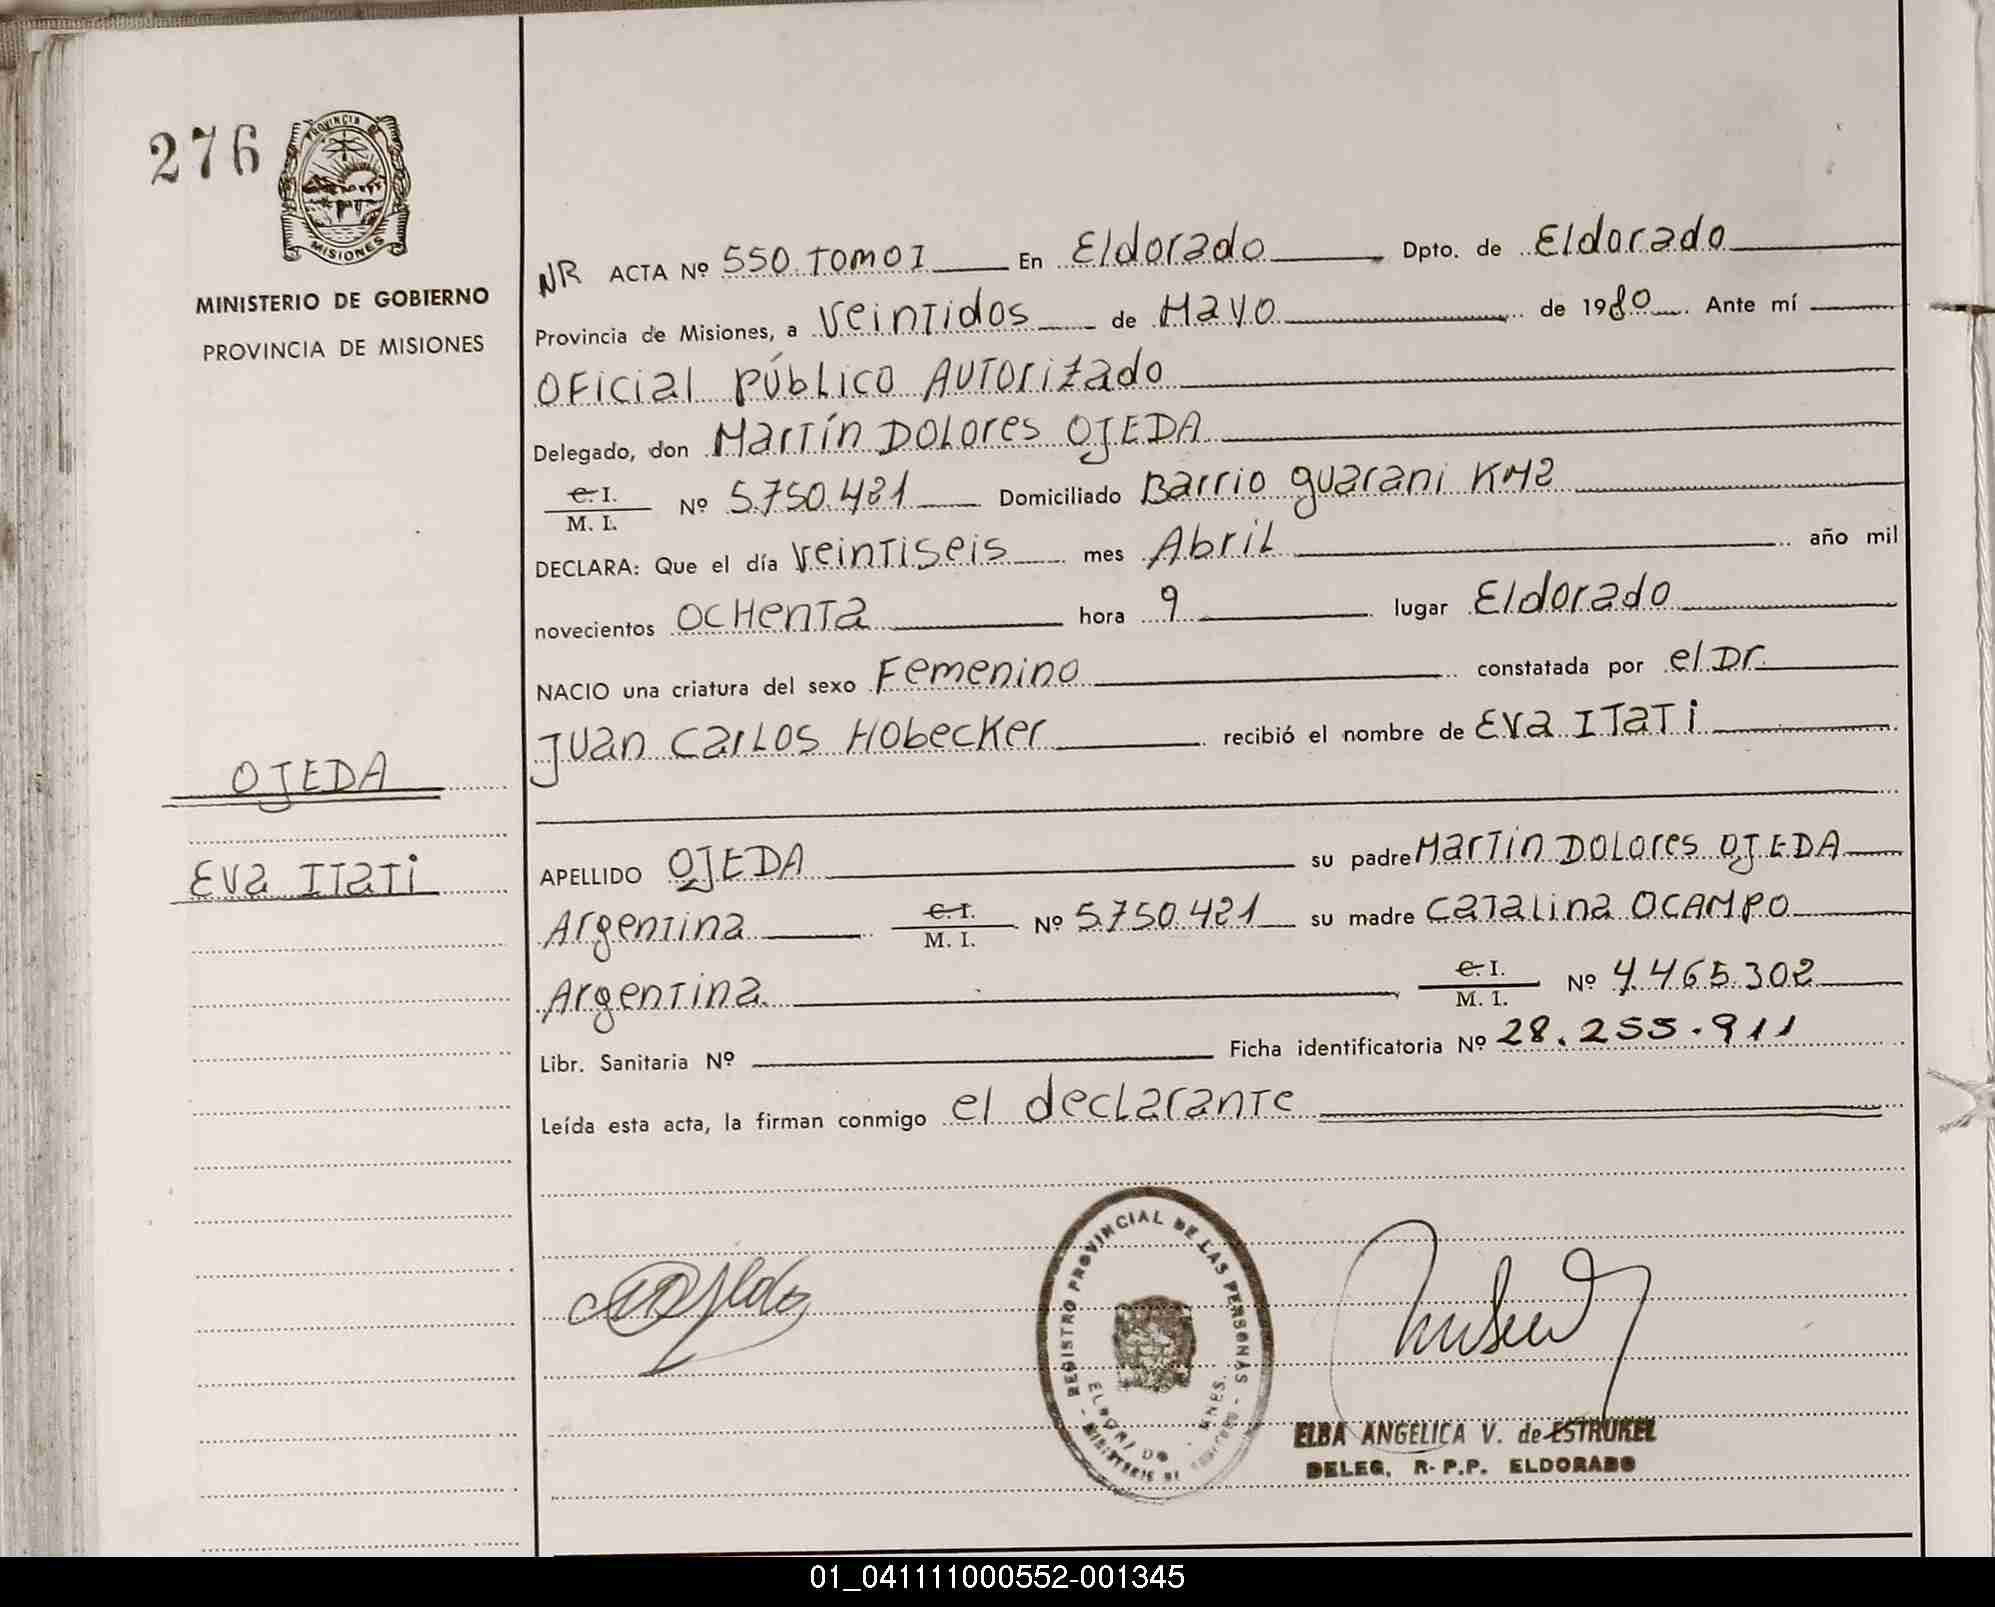 276
PROVINCIA DE
MISIONES
MINISTERIO DE GOBIERNO
PROVINCIA DE MISIONES
OJEDA
Eva Itati
NR ACTA Nº 550 Tomo I En Eldorado Dpto. de Eldorado
Provincia de Misiones, a Veintidos de Mayo de 1980 Ante mí
Oficial Público Autorizado
Delegado, don Martín Dolores OJEDA
C. I.
M. I. Nº 5.750.421 Domiciliado Barrio guarani KM2
DECLARA: Que el día Veintiseis mes Abril año mil
novecientos ochenta hora 9 lugar Eldorado
NACIO una criatura del sexo Femenino constatada por el Dr.
Juan Carlos Hobecker recibió el nombre de Eva Itati
APELLIDO OJEDA su padre Martin Dolores OJEDA
Argentina C. I. M. I. Nº 5.750.421 su madre Catalina OCAMPO
Argentina C. I. M. I. Nº 4.465.302
Libr. Sanitaria Nº Ficha identificatoria Nº 28.255.911
Leída esta acta, la firman conmigo el declarante
REGISTRO PROVINCIAL DE LAS PERSONAS
ELBA ANGELICA V. de ESTRUKEL
DELEG. R.P.P. ELDORADO
01_041111000552-001345